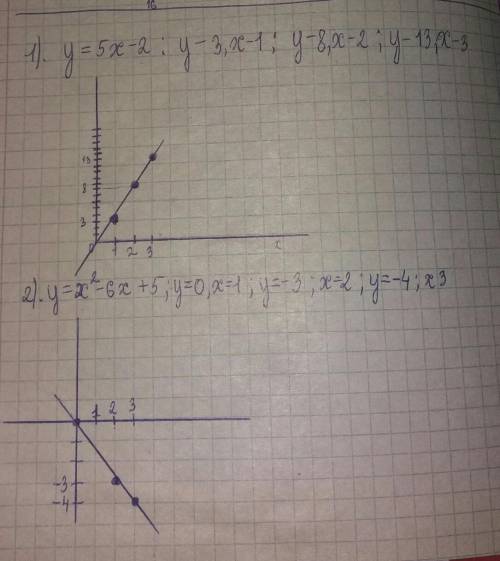 16
1). y=5x-2 ; y-3,x-1 ; y-8,x-2 ; y-13,x-3
13
8
3
0 1 2 3 x
2). y=x²-6x+5; y=0,x=1; y=-3; x=2; y=-4; x3
1 2 3
-3
-4